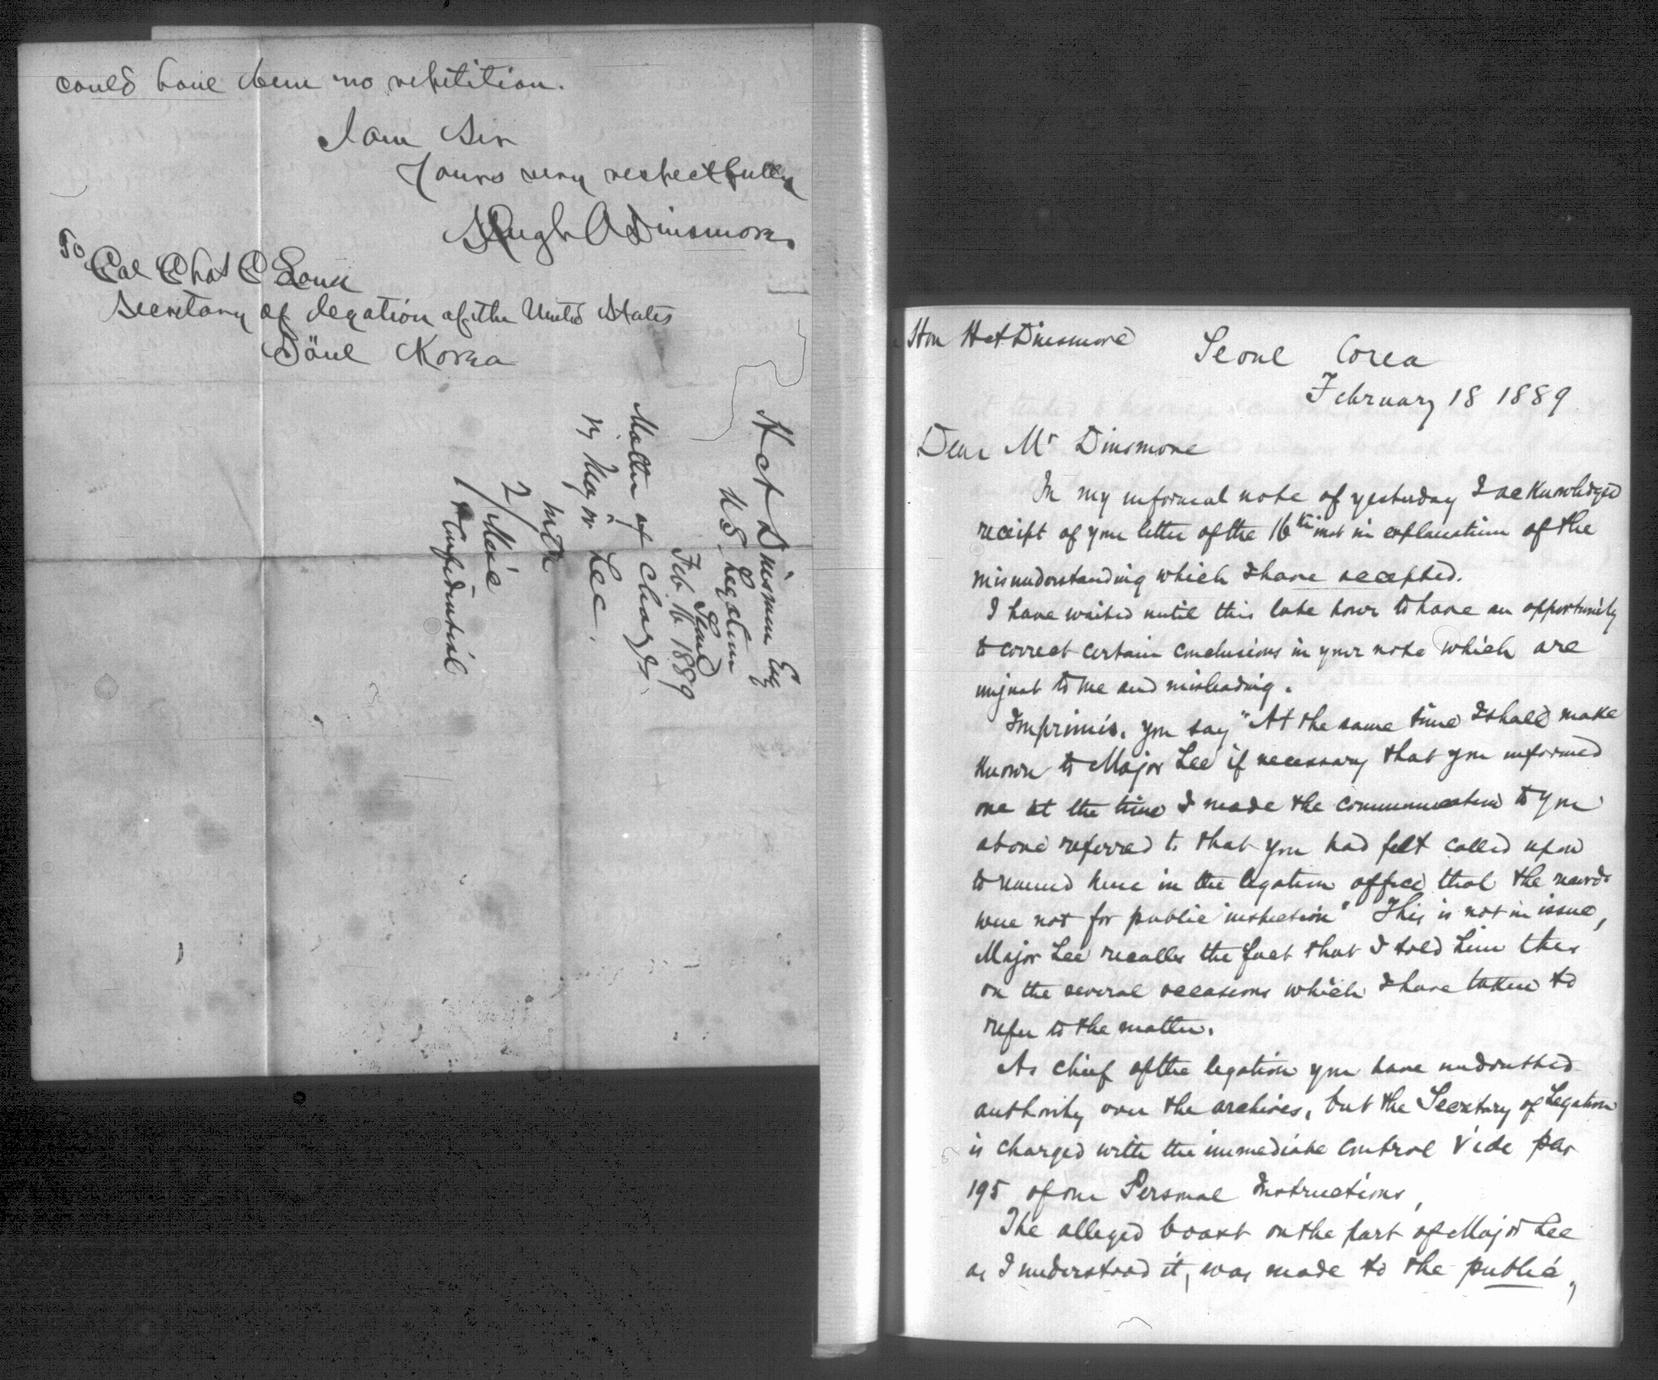 could have been no repetition.
I am Sir
Yours very respectfully
Hugh A Dinsmore.
To
Col Chas C Long
Secretary of legation of the United States
Söul Korea
H A Dinsmore Esq
U S Legation
Seoul
Feb 16 1889
Matter of charges,
by Major Lee.
2/
1/ Confidential
Hon H A Dinsmore
Seoul Corea
February 18 1889.
Dear Mr Dinsmore
In my informal note of yesterday I acknowledged
receipt of your letter of the 16th inst in explanation of the
misunderstanding which I have accepted.
I have waited until this late hour to have an opportunity
to correct certain conclusions in your note which are
unjust to me and misleading.
Imprimis, you say "At the same time I shall make
known to Major Lee if necessary that you informed
me at the time I made the communication to you
above referred to that you had felt called upon
to remind him in the legation office that the records
were not for public inspection" This is not in issue,
Major Lee recalls the fact that I told him this
on the several occasions which I have taken to
refer to the matter.
As chief of the legation you have undoubted
authority over the archives, but the Secretary of Legation
is charged with the immediate control Vide par
195 of our Personal Instructions,
The alleged boast on the part of Major Lee
as I understood it, was made to the public,